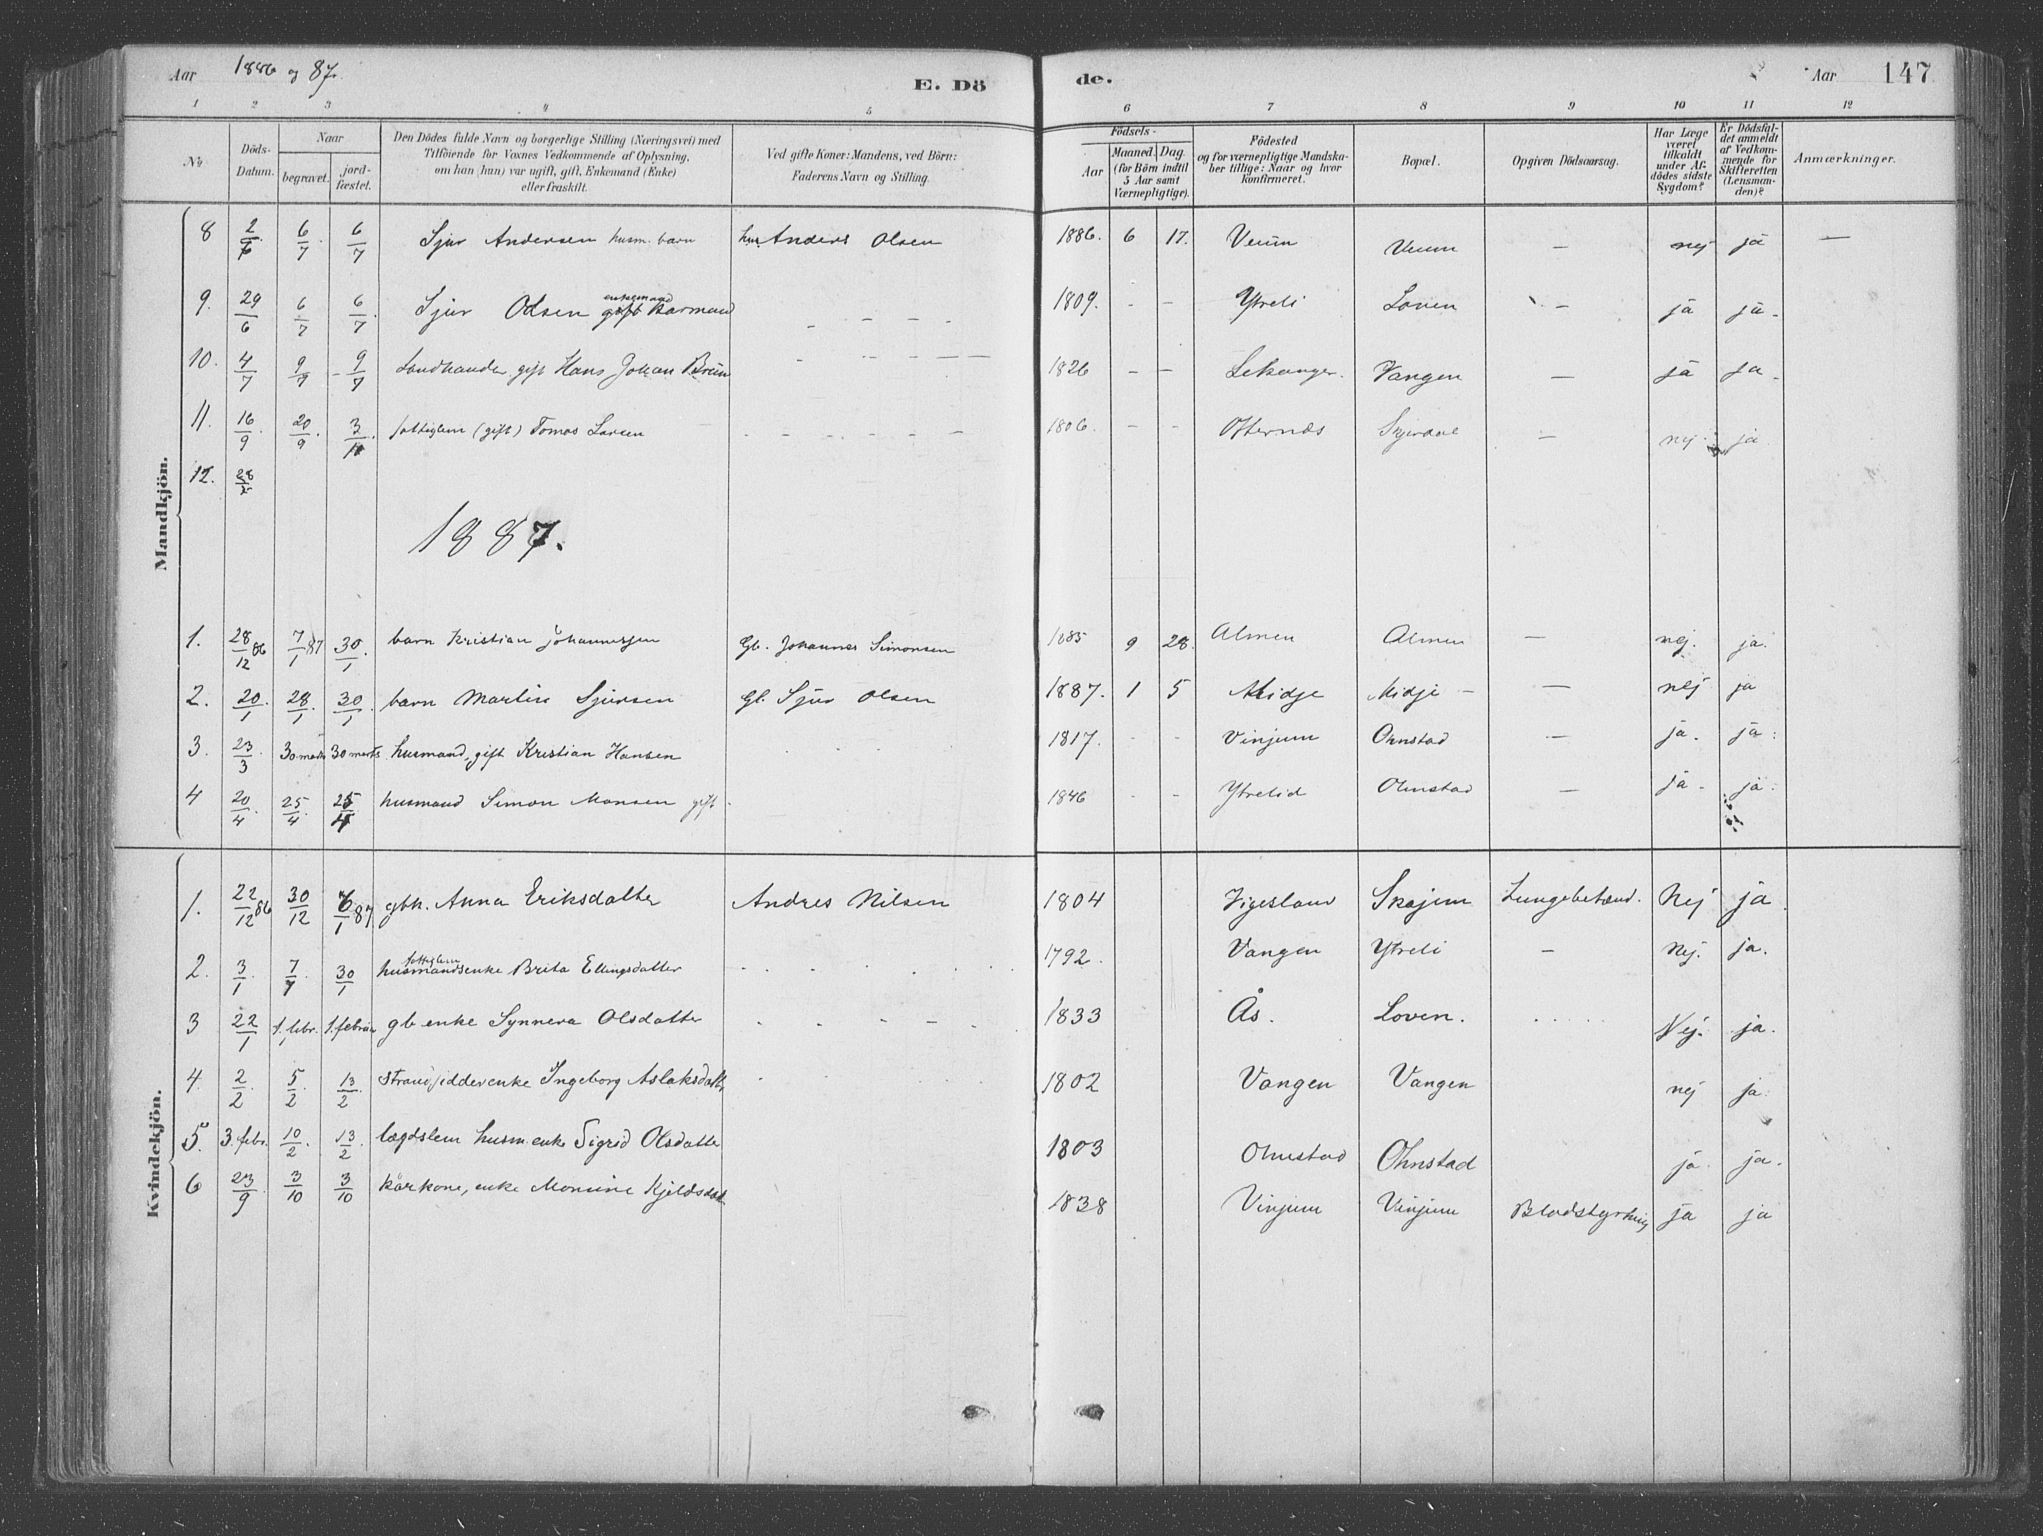 Aar 1886 og 87. E. Dö de. Aar 147
1 2 3 4 5 6 7 8 9 10 11 12
No. Döds-Datum. Naar begravet. jordfæstet. Den Dödes fulde Navn og borgerlige Stilling (Næringsvei) med Tilföiende for Voxnes Vedkommende af Oplysning, om han (hun) var ugift, gift, Enkemand (Enke) eller fraskilt. Ved gifte Koner: Mandens, ved Börn: Faderens Navn og Stilling. Födsels- Aar Maaned. Dag. (for Börn indtil 5 Aar samt Værnepligtige). Födested og for værnepligtige Mandskaber tillige: Naar og hvor konfirmeret. Bopæl. Opgiven Dödsaarsag. Har Læge været tilkaldt under Afdödes sidste Sygdom? Er Dödsfaldet anmeldt af Vedkommende for Skifteretten (Lensmanden)? Anmærkninger.
Mandkjön.
8 2/6. 6/7. 6/7 Sjur Andersen husm. barn hus. Anders Olsen 1886. 6 17. Veum Veum — nej ja —
9. 29/6 6/7 6/7. Sjur Olsen enkemand gift Kaarmand - - - - 1809. - - Ytreli Loven — ja ja.
10. 4/7 9/7 9/7 Landhandler, gift Hans Johan Brun - - - - - 1826 - - Lekanger. Vangen — ja ja.
11. 16/9. 20/9. 3/11. fattiglem (gift) Tomas Larsen - - - - - 1806. - - Otternæs Skjerdal — nej. ja.
12. 28/
1887.
1. 28/12 86 7/1 87 30/1. barn Kristian Johannessen Gb. Johannes Simonsen 1885 9 28. Almen Almen — nej. ja.
2. 20/1. 28/1. 30/1 barn Martin Sjursen Gb. Sjur Olsen 1887. 1 5 Midje Midje — — nej ja
3. 23/3. 30 marts 30 marts husmand, gift Kristian Hansen 1817. - - Vinjum Ohnstad — ja. ja.
4 20/4. 25/4. 25/4 husmand Simon Monsen gift. 1846 - - Ytrelid Ohnstad — ja. ja.
Kvindekjön.
1. 22/12 86 30/12 6/1 87 gbk. Anna Eriksdatter Andres Nilsen 1804 Vigesland Skajem Lungebetænd. Nej ja.
2. 3/1. 7/1. 30/1 fattiglem husmandsenke Brita Ellingsdatter 1792. Vangen Ytreli — Nej. ja.
3 22/1 1. febr. 1. februar gb enke Synneva Olsdatter 1833 Ås. Loven. Nej. ja.
4. 2/2. 5/2 13/2 strandsidderenke Ingeborg Aslaksdatt. 1802 Vangen Vangen nej ja.
5. 3. febr. 10/2. 13/2. lægdslem husm. enke Sigrid Olsdatter 1803 Ohnstad Ohnstad ja. ja.
6 23/9. 3/10 3/10 kårkone, enke Monsine Kjeldsdat. 1838 Vinjum Vinjum Blodstyrtning ja ja